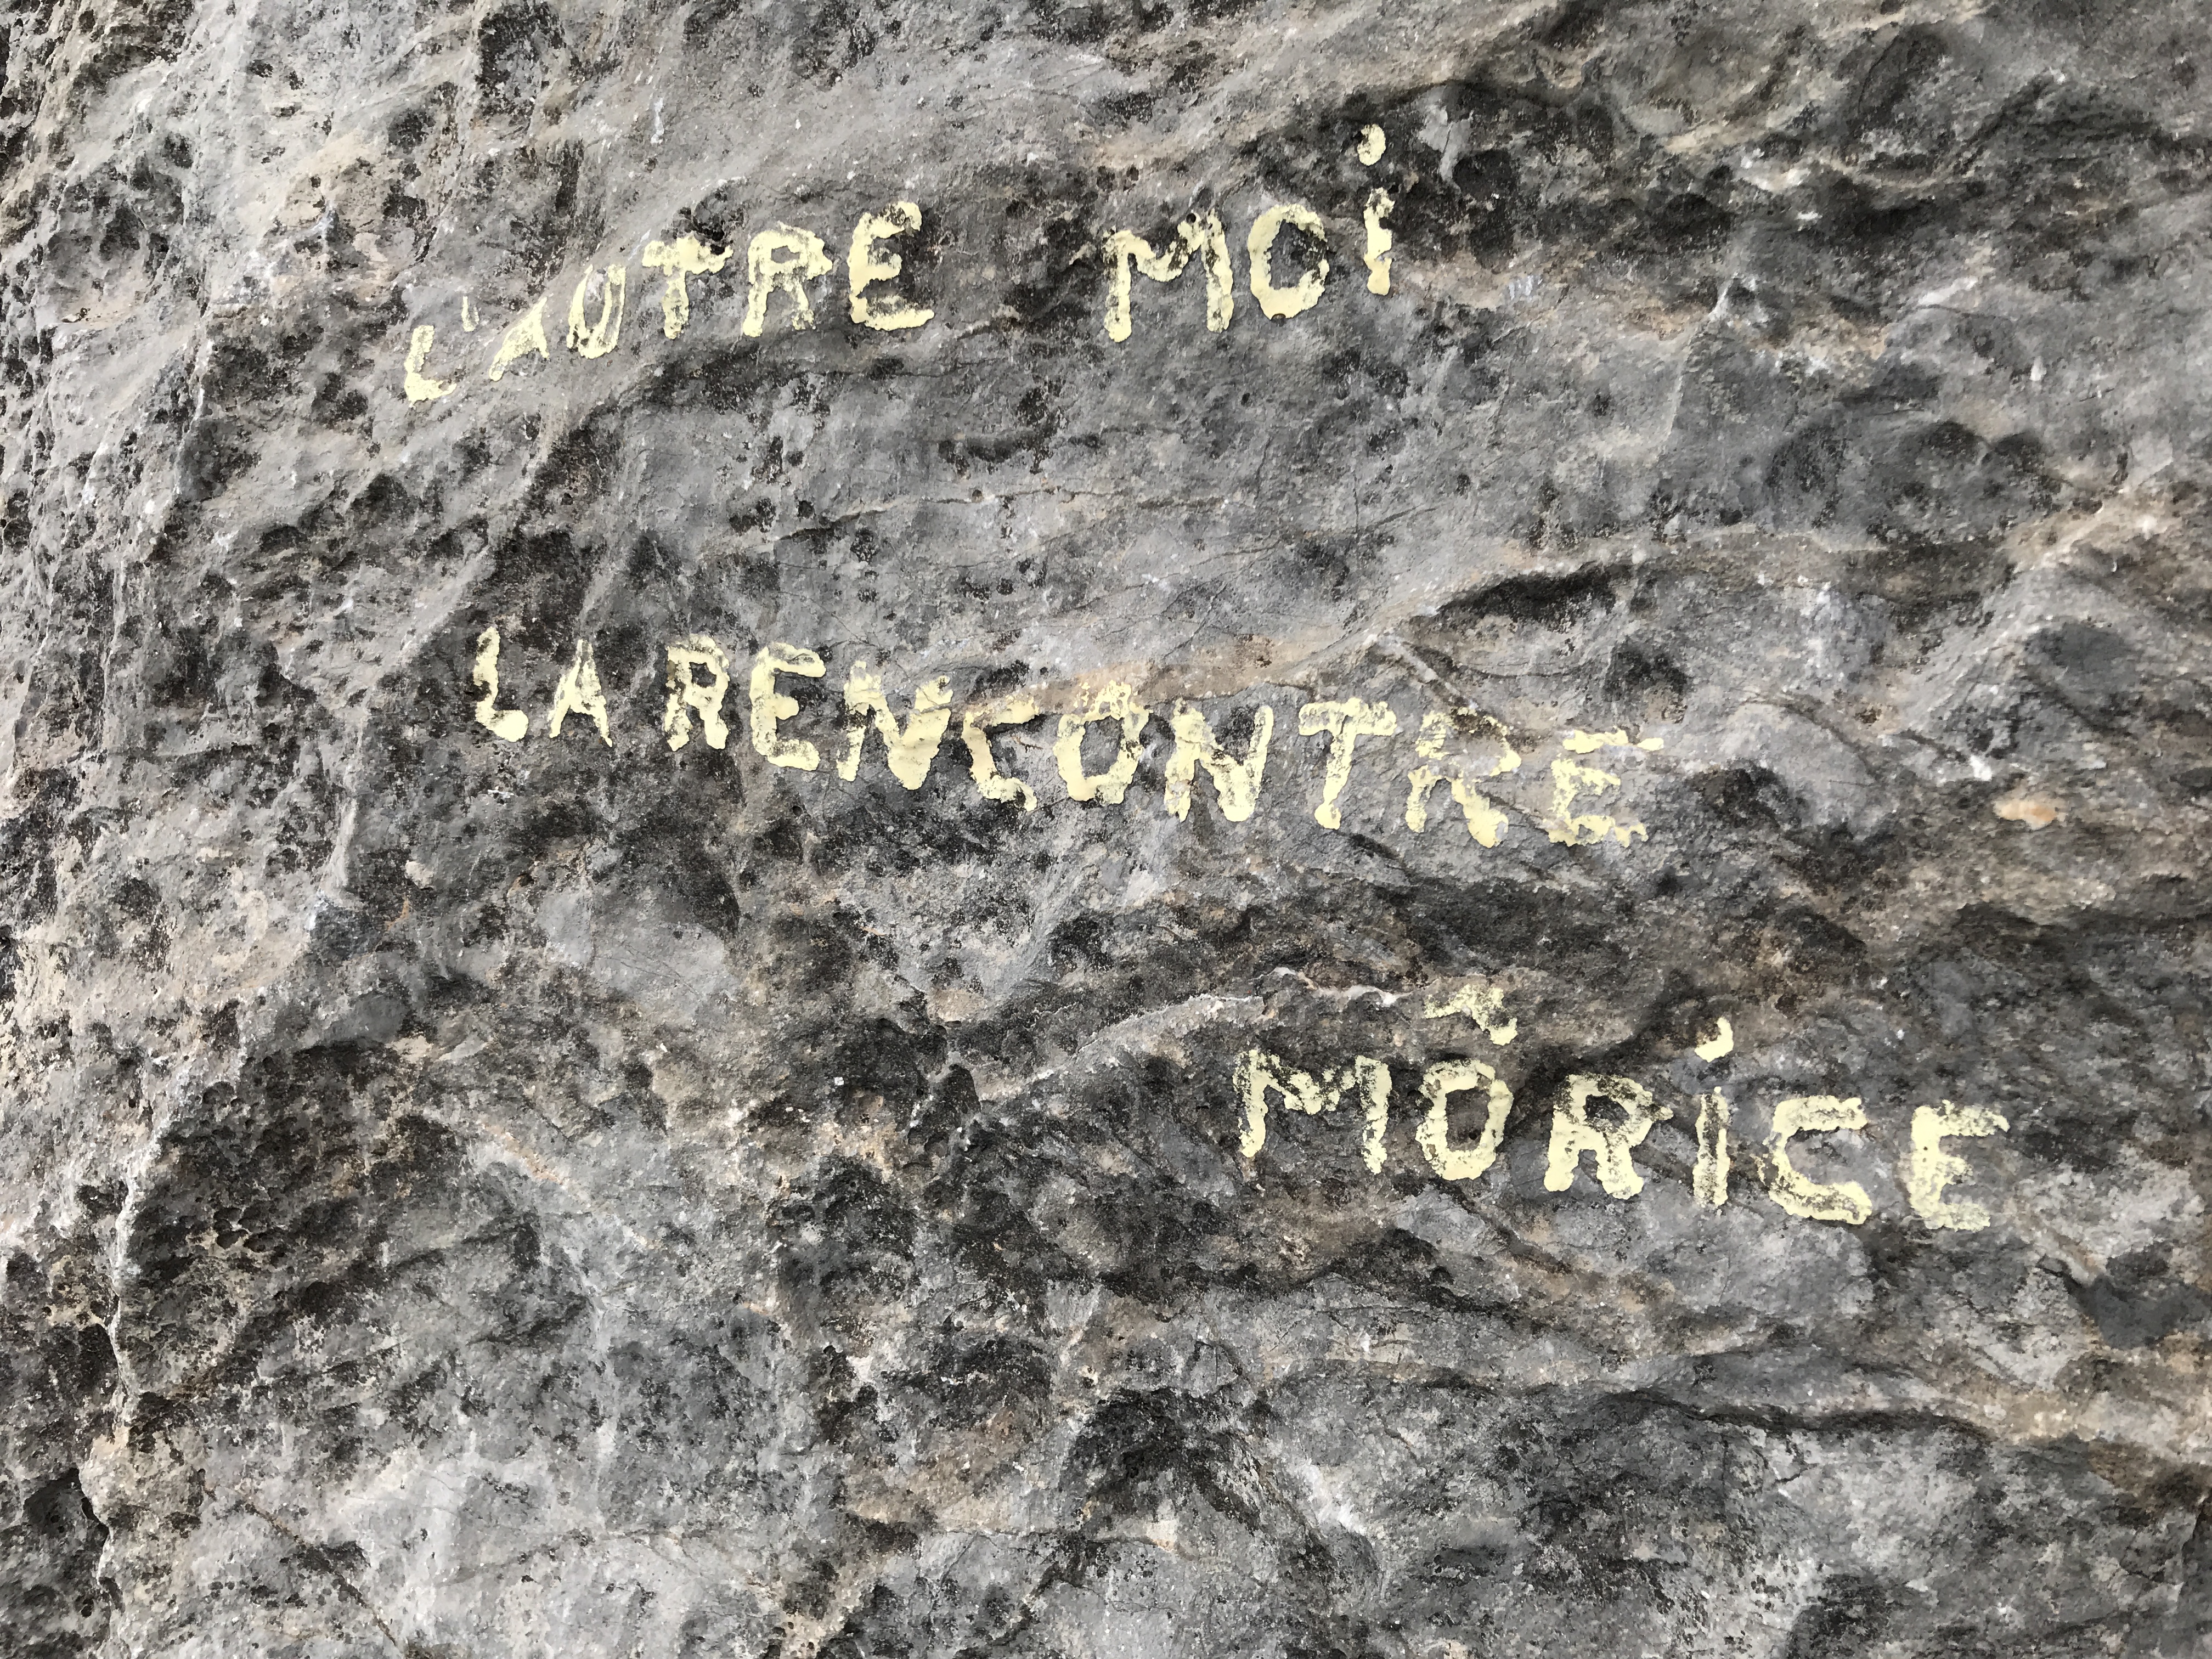 L'AUTRE MOi
LA RENCONTRE
MÔRiCE